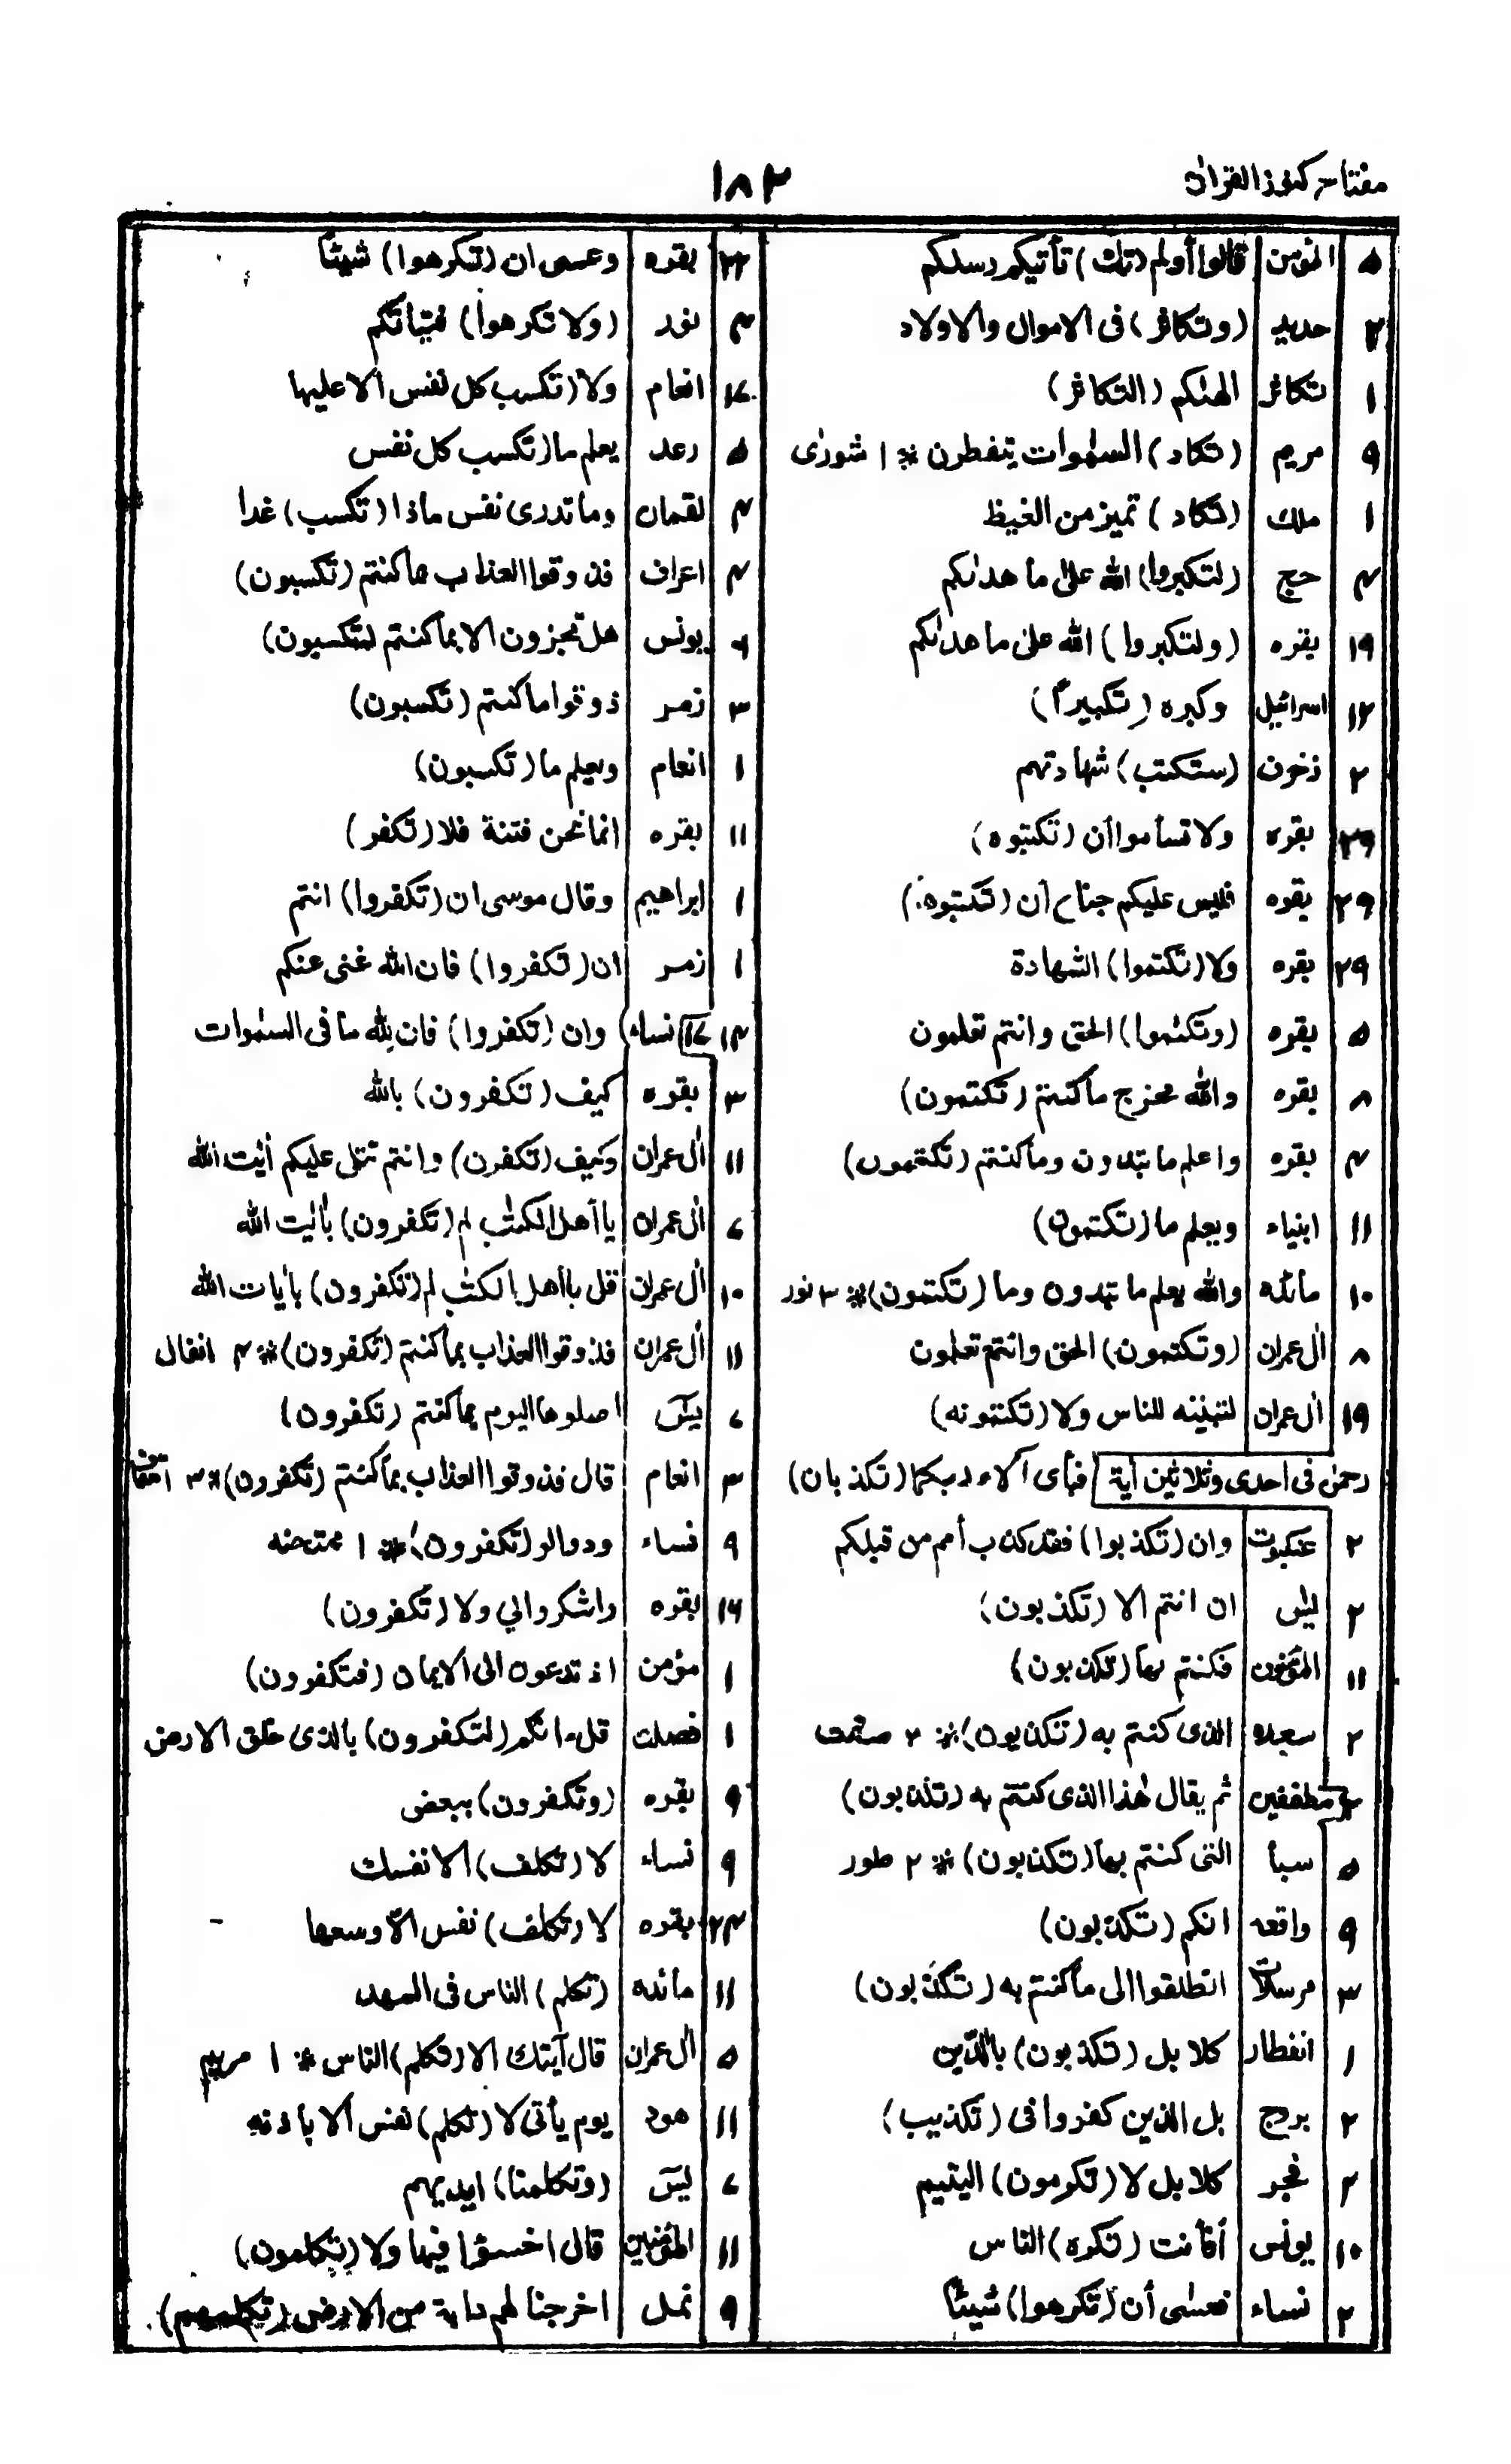 مفتاح كنوز القران
١٨٢
٥ المؤمن قالوا أولم (تك) تأتيكم رسلكم
٢ حديد (وتكاثر) فى الاموال والاولاد
١ تكاثر الهٰىكم (التكاثر)
٩ مريم (تكاد) السمٰوات يتفطرن * ١ شورٰى
١ ملك (تكاد) تميز من الغيظ
٤ حج (لتكبروا) الله علىٰ ما هدٰىكم
١٩ بقره (ولتكبروا) الله علىٰ ما هدٰىكم
١٢ اسرائيل وكبره (تكبيراً)
٢ زخرف (ستكتب) شهادتهم
٣٩ بقره ولا تسأموا أن (تكتبوه)
٢٩ بقره فليس عليكم جناح أن (تكتبوه)
٢٩ بقره ولا (تكتموا) الشهادة
٥ بقره (وتكتموا) الحق وانتم تعلمون
٨ بقره والله مخرج ما كنتم (تكتمون)
٤ بقره واعلم ما تبدون وما كنتم (تكتمون)
١١ انبياء ويعلم ما (تكتمون)
١٠ مائده والله يعلم ما تبدون وما (تكتمون) * ٣ نور
٨ اٰل عمران (وتكتمون) الحق وانتم تعلمون
١٩ اٰل عمران لتبيننه للناس ولا (تكتمونه)
رحمٰن فى احدى وثلاثين آية فبأى آلاء ربكما (تكذبان)
٢ عنكبوت وان (تكذبوا) فقد كذب أمم من قبلكم
٢ يٰس ان انتم الا (تكذبون)
١١ المؤمنون فكنتم بها (تكذبون)
٢ سجده الذى كنتم به (تكذبون) * ٢ صٰفٰت
مطففين ثم يقال هٰذا الذى كنتم به (تكذبون)
٥ سبأ التى كنتم بها (تكذبون) * ٢ طور
٩ واقعه انكم (تكذبون)
٣ مرسلات انطلقوا الى ما كنتم به (تكذبون)
١ انفطار كلا بل (تكذبون) بالدّين
٢ بروج بل الذين كفروا فى (تكذيب)
٢ فجر كلا بل لا (تكرمون) اليتيم
١٠ يونس أفأنت (تكره) الناس
٢ نساء فعسٰى أن (تكرهوا) شيئاً
٢٢ بقره وعسى ان (تكرهوا) شيئاً
٤ نور (ولا تكرهوا) فتياتكم
١٧ انعام ولا (تكسب كل نفس الا عليها
٥ رعد يعلم ما (تكسب كل نفس
٤ لقمان وما تدرى نفس ماذا (تكسب) غدا
٤ اعراف فذوقوا العذاب بما كنتم (تكسبون)
٦ يونس هل تجزون الا بما كنتم (تكسبون)
٣ زمر ذوقوا ما كنتم (تكسبون)
١ انعام ويعلم ما (تكسبون)
١١ بقره انما نحن فتنة فلا (تكفر)
١ ابراهيم وقال موسى ان (تكفروا) انتم
١ زمر ان (تكفروا) فان الله غنى عنكم
١٤ ١٧ نساء وان (تكفروا) فان لله ما فى السمٰوات
٣ بقره كيف (تكفرون) بالله
١١ اٰل عمران وكيف (تكفرون) وانتم تتلى عليكم أيٰت الله
٧ اٰل عمران يا أهل الكتٰب لم (تكفرون) بأيٰت الله
١٠ اٰل عمران قل يا أهل الكتٰب لم (تكفرون) بأيات الله
١١ اٰل عمران فذوقوا العذاب بما كنتم (تكفرون) * ٤ انفال
٧ يٰسٓ اصلوها اليوم بما كنتم (تكفرون)
٣ انعام قال فذوقوا العذاب بما كنتم (تكفرون) * ٣ احقاف
٩ نساء ودوا لو (تكفرون) * ١ ممتحنه
١٦ بقره واشكروا لي ولا (تكفرون)
١ مؤمن اذ تدعون الى الايمان (فتكفرون)
١ فصلت قل ءانكم (لتكفرون) بالذى خلق الارض
٩ بقره (وتكفرون) ببعض
٩ نساء لا (تكلف) الا نفسك
٢٤ بقره لا (تكلف) نفس الّا وسعها
١١ مائده (تكلم) الناس فى المهد
٥ اٰل عمران قال آيتك الا (تكلم) الناس * ١ مريم
١١ هود يوم يأتى لا (تكلم) نفس الا بأذنه
٧ يٰسٓ (وتكلمنا) ايديهم
١١ المؤمنين قال اخسؤا فيها ولا (تكلمون)
٩ نمل اخرجنا لهم دابة من الارض (تكلمهم)